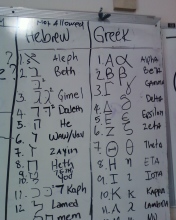 Not Allowed
Hebrew Greek
1. א Aleph
2. ב Beth
3. ג Gimel
4. ד Daleth
5. ה He
6. ו Waw/Vav
7. ז Zayin
8. ח Heth
10. י Yod
11. כ ך Kaph
12. ל Lamed
mem
1. Α α Alpha
2. Β β Beta
3. Γ γ Gamma
4. Δ δ Delta
5. Ε ε Epsilon
6. Ζ ζ Zeta
7. Θ θ Theta
8. Η η ETA
9. Ι ι IOTA
10. Κ κ Kappa
11. Λ λ Lambda